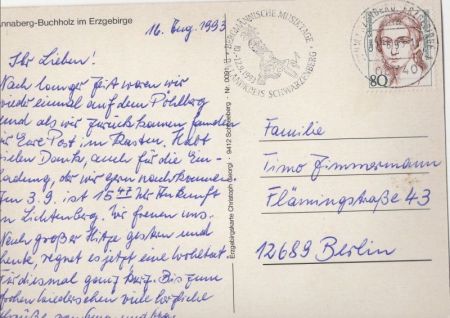 Annaberg-Buchholz im Erzgebirge
16. Aug. 1993
Ihr Lieben!
Nach langer Zeit waren wir
wieder einmal auf dem Pöhlberg
und als wir zurückkamen fanden
wir Eure Post im Kasten. Habt
vielen Dank, auch für die Ein-
ladung, der wir gern nachkommen
Am 3.9. ist 15 47 Uhr Ankunft
in Lichtenberg. Wir freuen uns.
Nach großer Hitze gestern und
heute, regnet es jetzt eine Wohltat
Für diesmal ganz kurz. Bis zum
frohen Wiedersehen viele herzliche
Grüße
Erzgebirgskarte Christoph Georgi · 9412 Schneeberg · Nr. 0091
BERGMÄNNISCHE MUSIKTAGE
12.9.1993
LANDKREIS SCHWARZENBERG
80
Familie
Timo Zimmermann
Flämingstraße 43
12689 Berlin